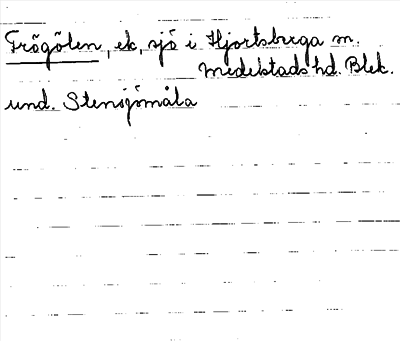 Frögölen, ek, sjö i Hjortsberga sn.
Medelstads hd. Blek.
und. Stensjömåla